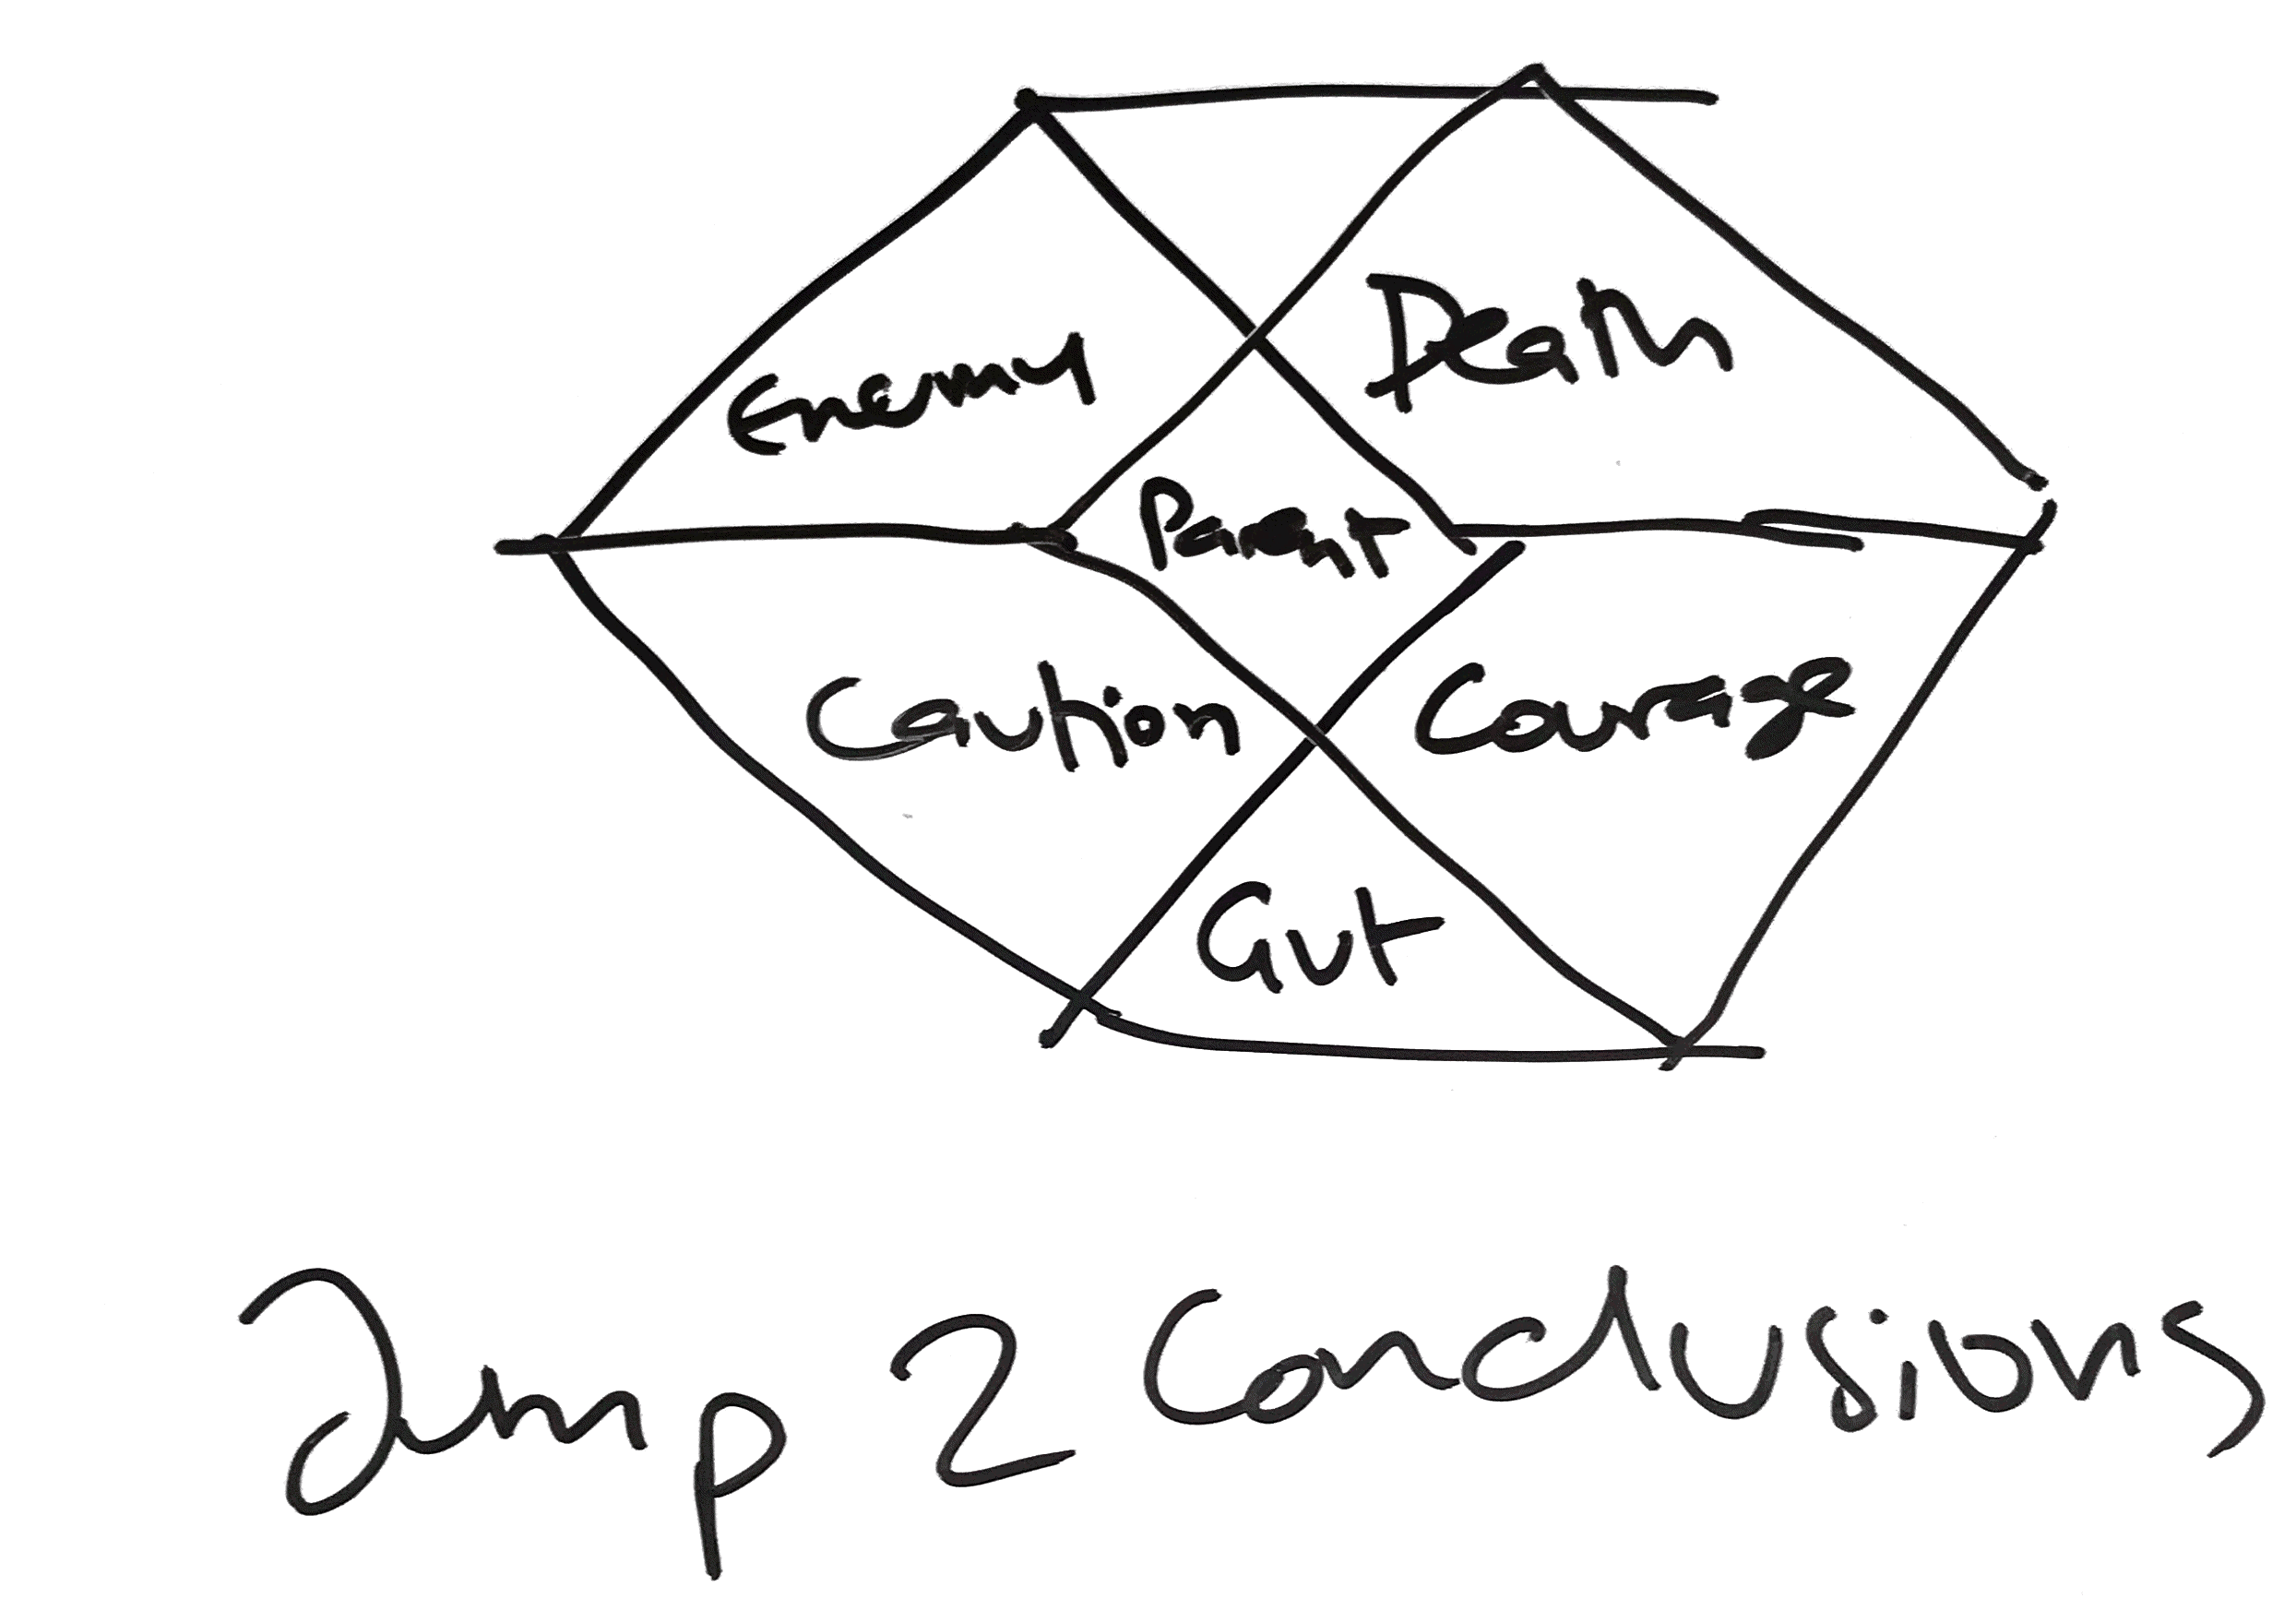 Enemy
Death
Parent
Caution
Courage
Gut
Jump 2 Conclusions